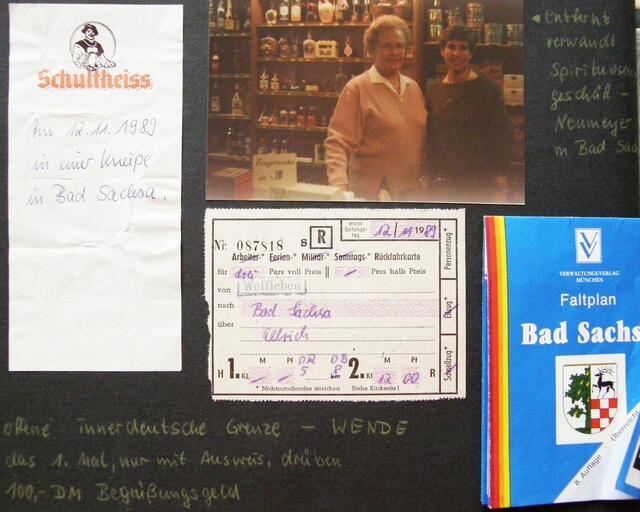 Schultheiss
Am 12.11.1989
in einer Kneipe
in Bad Sachsa.
◂ entfernt
verwandt
Spirituosen
geschäft -
Neumeyer
in Bad Sachs
Nr. 087818 S R
erster Geltungs-tag 12/11 1989
Arbeiter-* Ferien-* Militär-* Sonntags-* Rückfahrkarte
für drei Pers voll Preis || / Pers halb Preis
von Wolfleben
nach Bad Sachsa
über Ellrich
M Pf DR DB M Pf
H 1. Kl. 5 km 8 2. Kl. 12 00 R
* Nichtzutreffendes streichen Siehe Rückseite!
Personenzug*
Eilzug*
Schnellzug*
VV
VERWALTUNGS-VERLAG
MÜNCHEN
Faltplan
Bad Sachs
8. Auflage Überreich
offene innerdeutsche Grenze - WENDE
das 1. mal, nur mit Ausweis, drüben
100,- DM Begrüßungsgeld